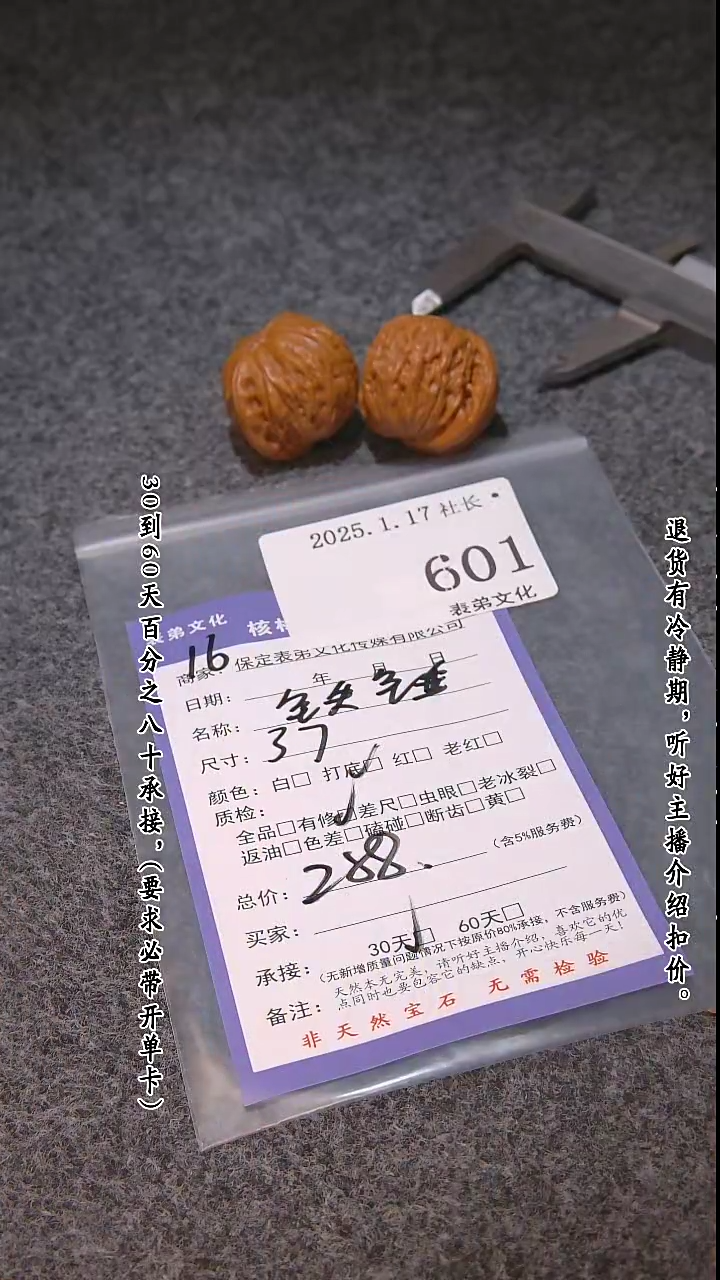 2025.1.17 社长
601
表弟文化
表弟文化 核
16
商家：保定表弟文化传媒有限公司
日期： 年 月 日
名称：
尺寸：37
颜色：白□ 打底□ 红□ 老红□
质检：
全品□有修□差尺□虫眼□老冰裂□
返油□色差□磕碰□断齿□黄□
总价：288.（含5%服务费）
买家：
承接：30天□ 60天□
（无新增质量问题情况下按原价80%承接，不含服务费）
备注：天然本无完美，请听好主播介绍，喜欢它的优
点同时也要包容它的缺点，开心快乐每一天！
非天然宝石 无需检验
30到60天百分之八十承接，（要求必带开单卡）
退货有冷静期，听好主播介绍扣价。